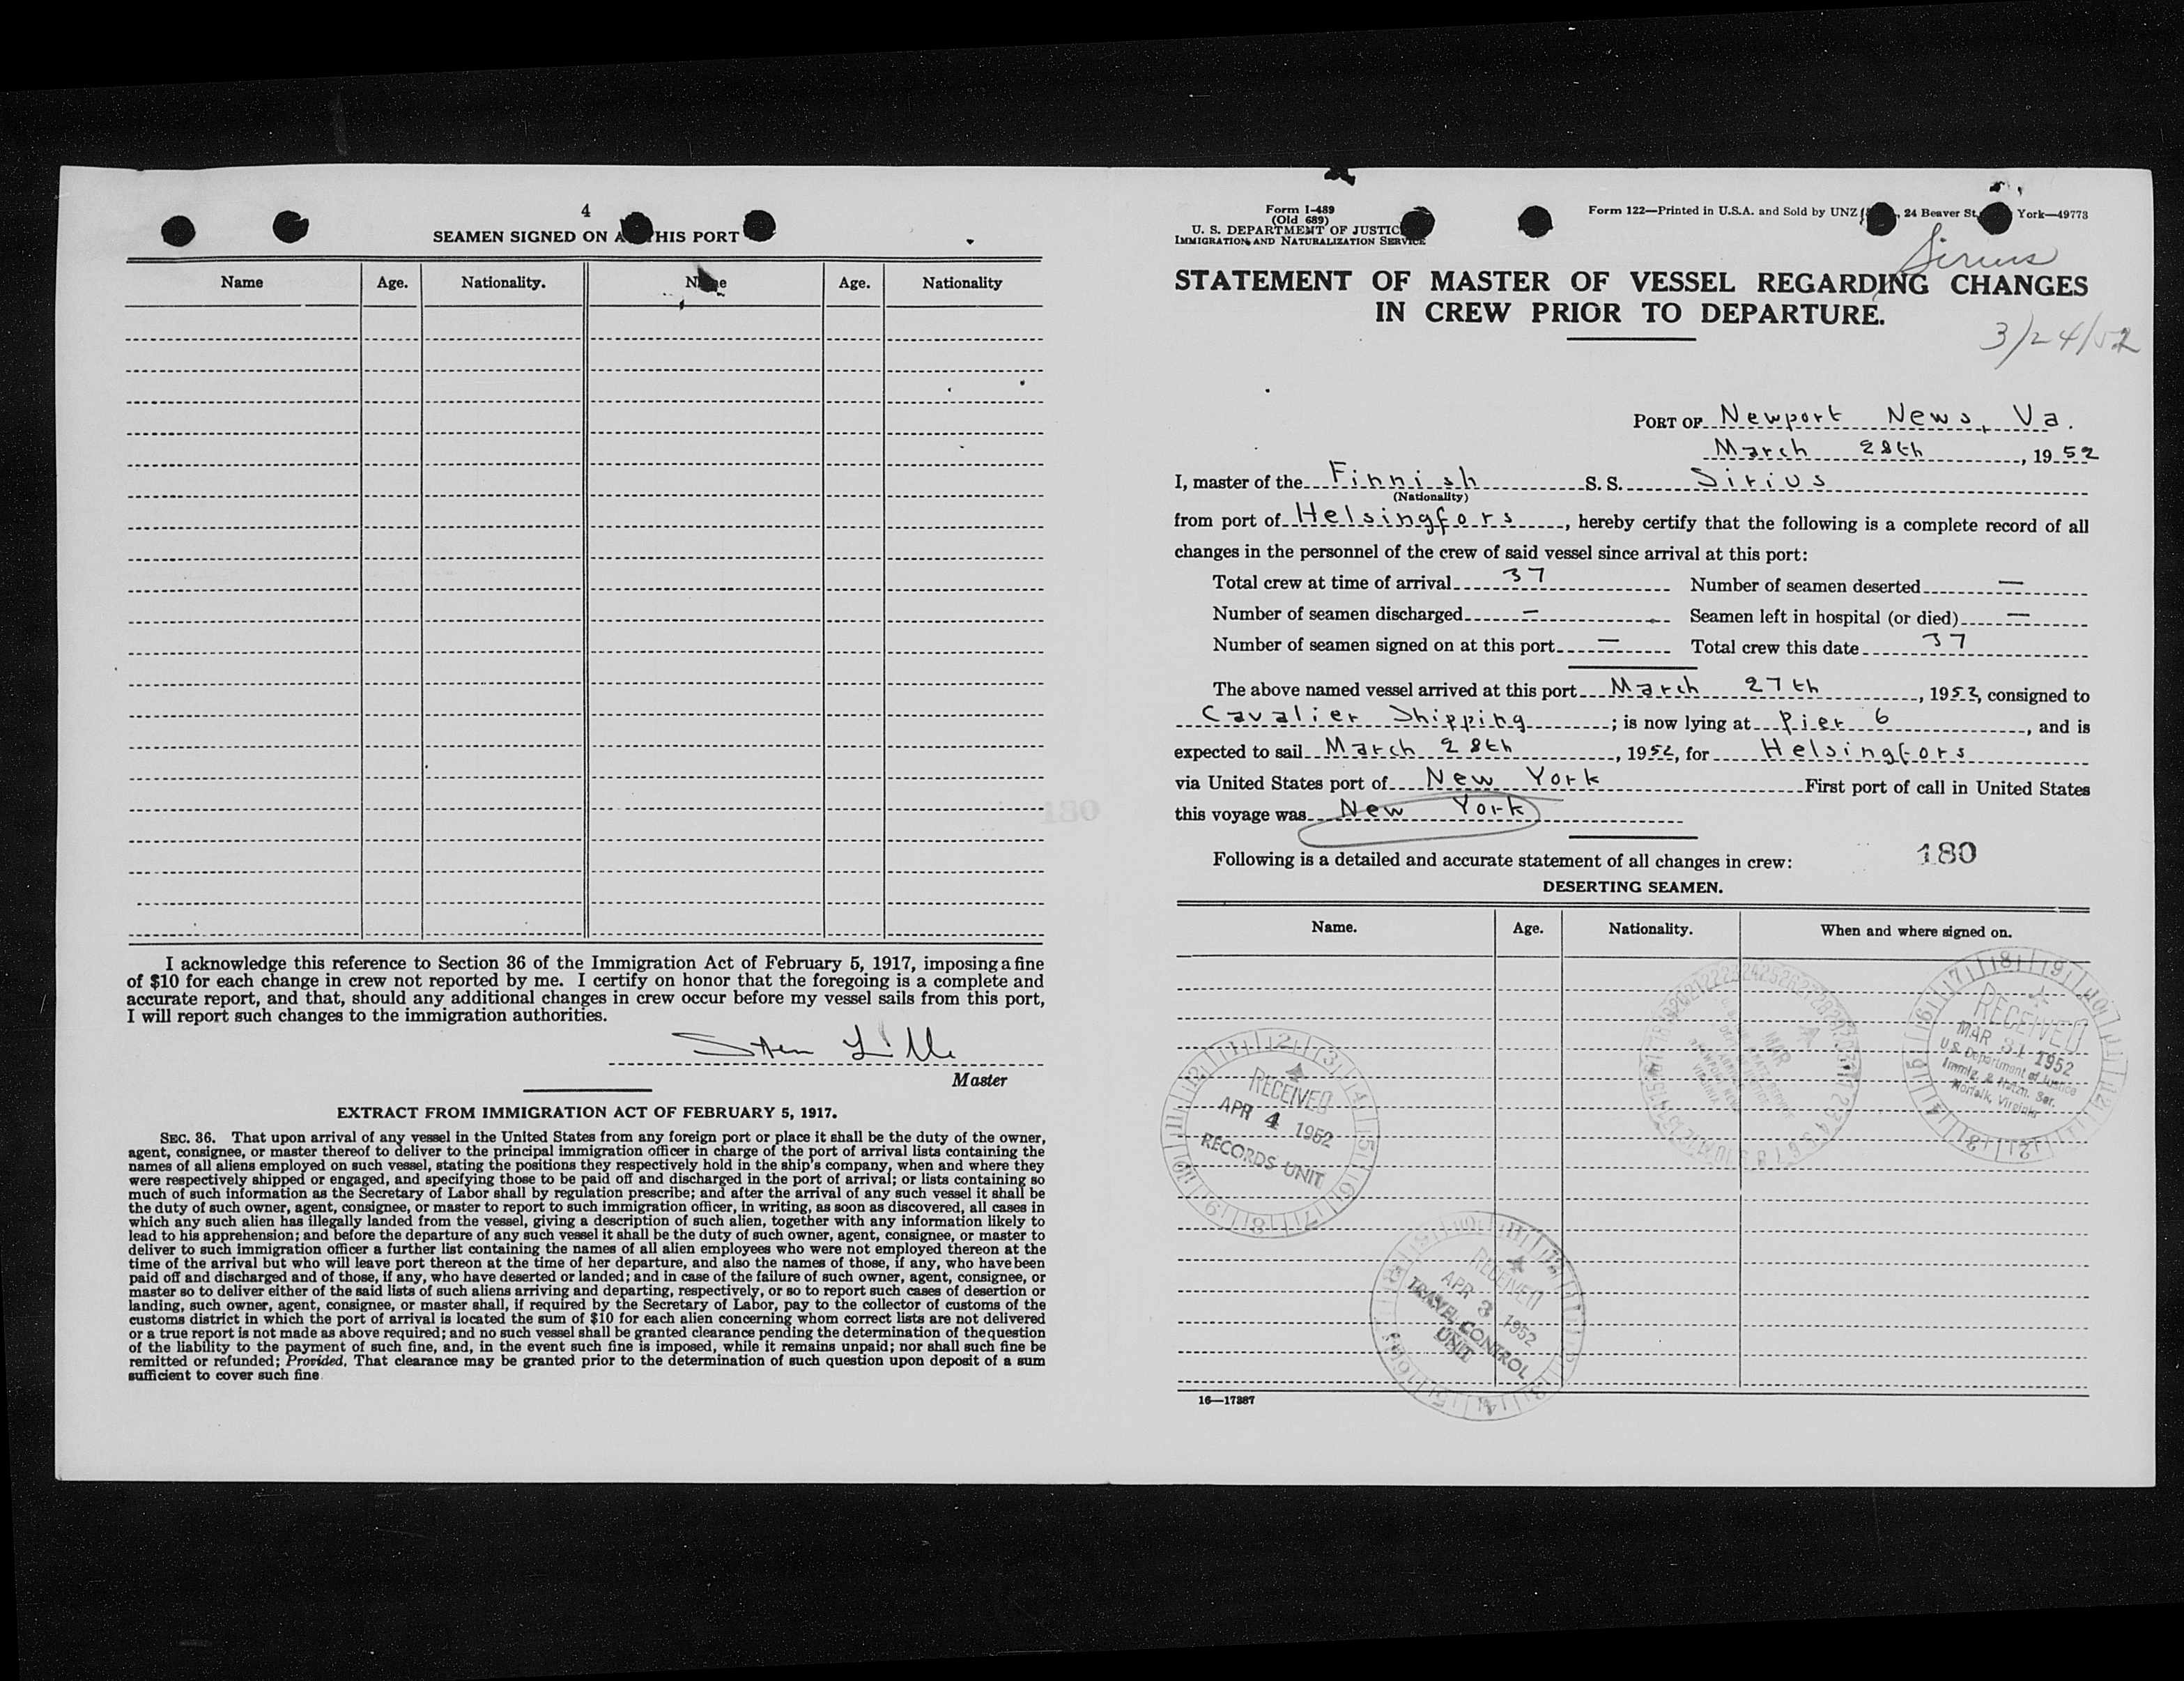 4
SEAMEN SIGNED ON A HIS PORT
Name Age. Nationality. N e Age. Nationality
I acknowledge this reference to Section 36 of the Immigration Act of February 5, 1917, imposing a fine
of $10 for each change in crew not reported by me. I certify on honor that the foregoing is a complete and
accurate report, and that, should any additional changes in crew occur before my vessel sails from this port,
I will report such changes to the immigration authorities.
Master
EXTRACT FROM IMMIGRATION ACT OF FEBRUARY 5, 1917.
SEC. 36. That upon arrival of any vessel in the United States from any foreign port or place it shall be the duty of the owner,
agent, consignee, or master thereof to deliver to the principal immigration officer in charge of the port of arrival lists containing the
names of all aliens employed on such vessel, stating the positions they respectively hold in the ship's company, when and where they
were respectively shipped or engaged, and specifying those to be paid off and discharged in the port of arrival; or lists containing so
much of such information as the Secretary of Labor shall by regulation prescribe; and after the arrival of any such vessel it shall be
the duty of such owner, agent, consignee, or master to report to such immigration officer, in writing, as soon as discovered, all cases in
which any such alien has illegally landed from the vessel, giving a description of such alien, together with any information likely to
lead to his apprehension; and before the departure of any such vessel it shall be the duty of such owner, agent, consignee, or master to
deliver to such immigration officer a further list containing the names of all alien employees who were not employed thereon at the
time of the arrival but who will leave port thereon at the time of her departure, and also the names of those, if any, who have been
paid off and discharged and of those, if any, who have deserted or landed; and in case of the failure of such owner, agent, consignee, or
master so to deliver either of the said lists of such aliens arriving and departing, respectively, or so to report such cases of desertion or
landing, such owner, agent, consignee, or master shall, if required by the Secretary of Labor, pay to the collector of customs of the
customs district in which the port of arrival is located the sum of $10 for each alien concerning whom correct lists are not delivered
or a true report is not made as above required; and no such vessel shall be granted clearance pending the determination of the question
of the liability to the payment of such fine, and, in the event such fine is imposed, while it remains unpaid; nor shall such fine be
remitted or refunded; Provided, That clearance may be granted prior to the determination of such question upon deposit of a sum
sufficient to cover such fine.
Form I-489
(Old 689)
U. S. DEPARTMENT OF JUSTIC
IMMIGRATION AND NATURALIZATION SERVICE
Form 122—Printed in U.S.A. and Sold by UNZ , 24 Beaver St. York—49773
Sirius
STATEMENT OF MASTER OF VESSEL REGARDING CHANGES
IN CREW PRIOR TO DEPARTURE.
3/24/52
PORT OF Newport News, Va.
March 28th, 1952
I, master of the Finnish S. S. Sirius
(Nationality)
from port of Helsingfors, hereby certify that the following is a complete record of all
changes in the personnel of the crew of said vessel since arrival at this port:
Total crew at time of arrival 37 Number of seamen deserted —
Number of seamen discharged — Seamen left in hospital (or died) —
Number of seamen signed on at this port — Total crew this date 37
The above named vessel arrived at this port March 27th, 1952, consigned to
Cavalier Shipping; is now lying at Pier 6, and is
expected to sail March 28th, 1952, for Helsingfors
via United States port of New York First port of call in United States
this voyage was New York
Following is a detailed and accurate statement of all changes in crew:
180
DESERTING SEAMEN.
Name. Age. Nationality. When and where signed on.
RECEIVED
MAR 31 1952
U.S. Department of Justice
Immig. & Natzn. Ser.
Norfolk, Virginia
RECEIVED
APR 4 1952
RECORDS UNIT
RECEIVED
APR 3 1952
TRAVEL CONTROL
UNIT
16—17387